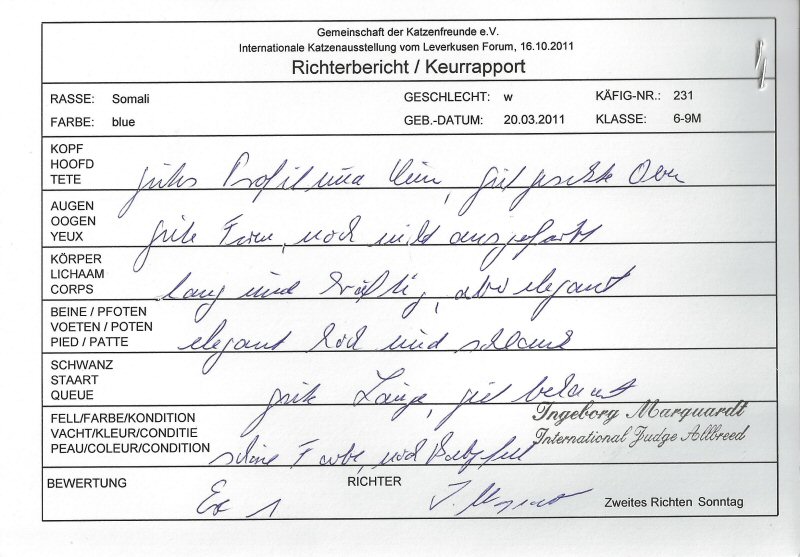 Gemeinschaft der Katzenfreunde e.V.
Internationale Katzenausstellung vom Leverkusen Forum, 16.10.2011
Richterbericht / Keurrapport
RASSE: Somali GESCHLECHT: w KÄFIG-NR.: 231
FARBE: blue GEB.-DATUM: 20.03.2011 KLASSE: 6-9M
KOPF
HOOFD
TETE gutes Profil und Kinn, gut gesetzte Ohren
AUGEN
OOGEN
YEUX gute Form, noch nicht ausgefärbt
KÖRPER
LICHAAM
CORPS lang und kräftig, aber elegant
BEINE / PFOTEN
VOETEN / POTEN
PIED / PATTE elegant hoch und schlank
SCHWANZ
STAART
QUEUE gute Länge, gut behaart
Ingeborg Marquardt
International Judge Allbreed
FELL/FARBE/KONDITION
VACHT/KLEUR/CONDITIE
PEAU/COLEUR/CONDITION schöne Farbe, noch Babyfell
BEWERTUNG Ex 1 RICHTER I. Marquardt Zweites Richten Sonntag